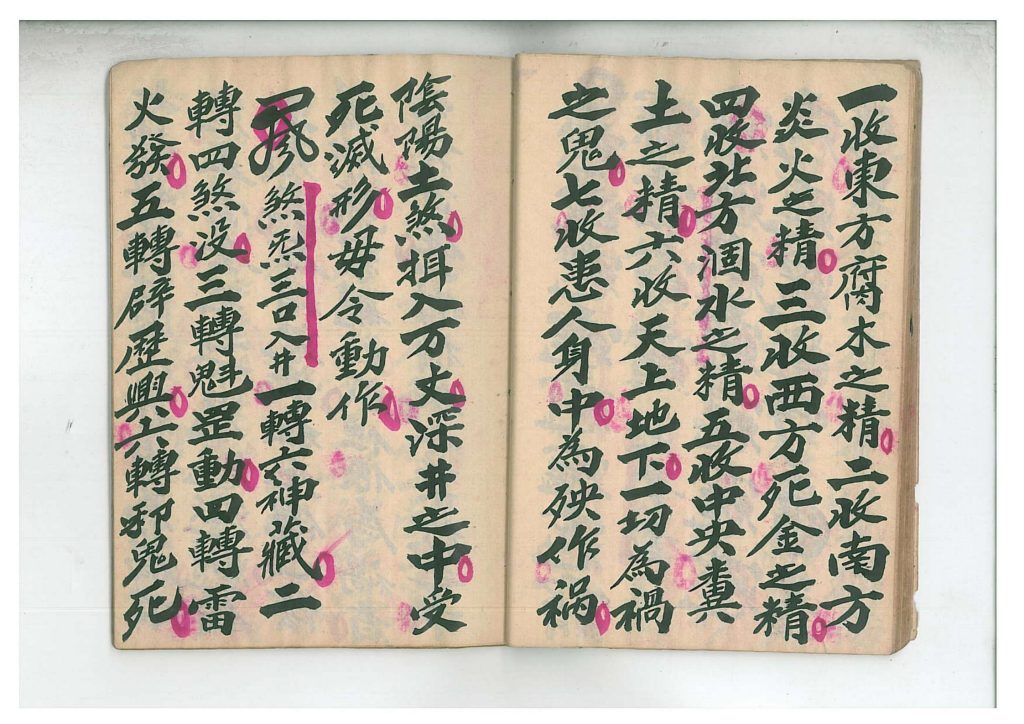 一收東方腐木之精二收南方
炎火之精三收西方死金之精
四收北方涸水之精五收中央糞
土之精六收天上地下一切為禍
之鬼七收患人身中為殃作禍
陰陽土煞揖入万丈深井之中受
死滅形毋令動作
煞炁三口入井一轉六神藏二
轉四煞没三轉魁罡動四轉雷
火發五轉辟歷興六轉邪鬼死